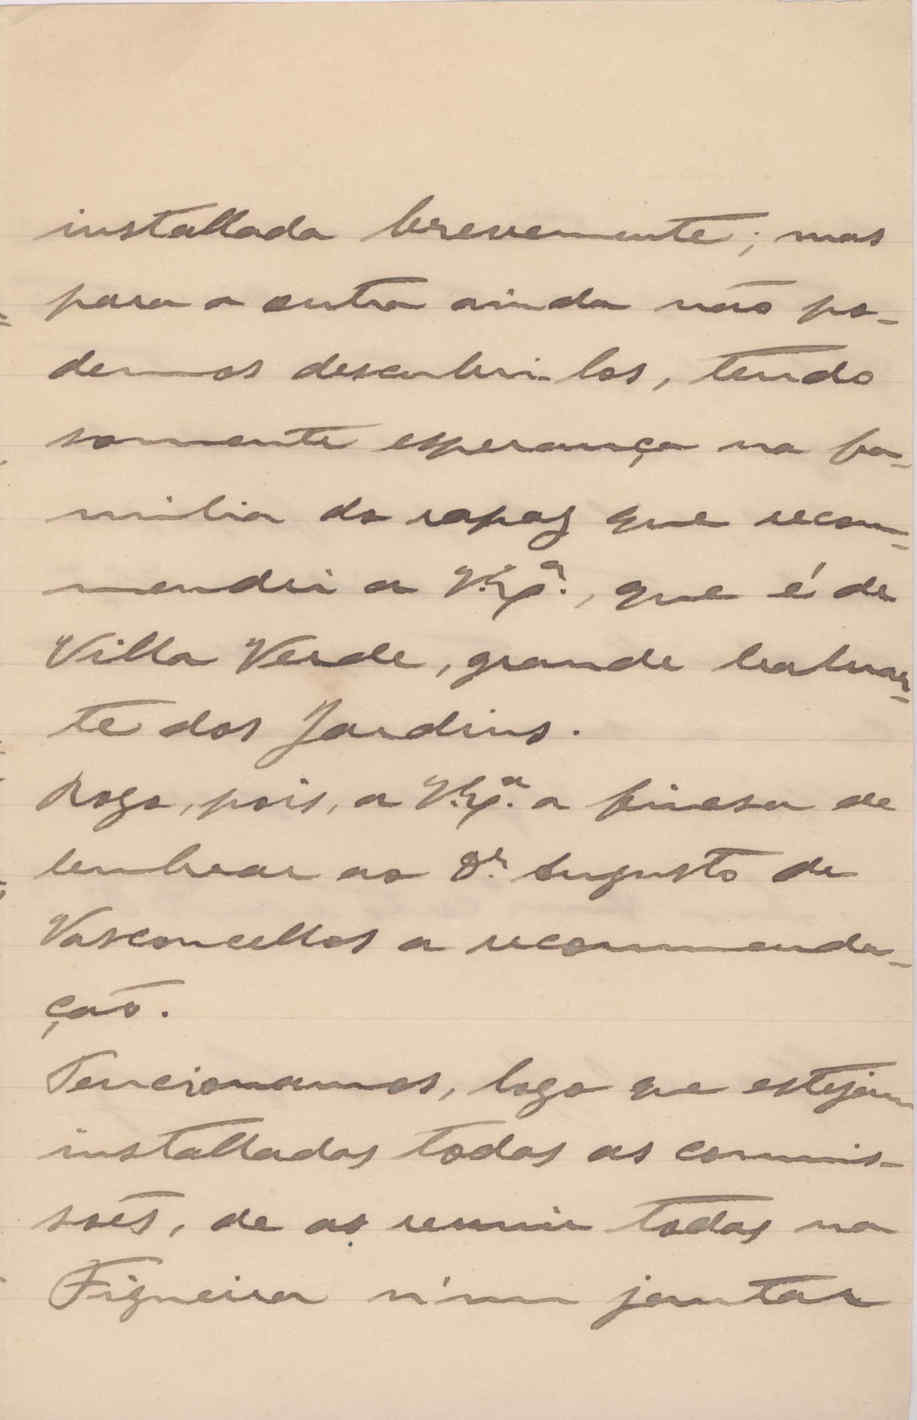 installada brevemente; mas
para a outra ainda não po-
demos descubri-los, tendo
somente esperança na fa-
milia do rapaz que recom-
mendei a V. Exª., que é de
Villa Verde, grande baluar-
te dos Jardins.
Rogo, pois, a V. Exª. a finesa de
lembrar ao Dr. Augusto de
Vasconcellos a recommenda-
ção.
Tencionamos, logo que estejam
installadas todas as commis-
sões, de as reunir todas na
Figueira n'um jantar